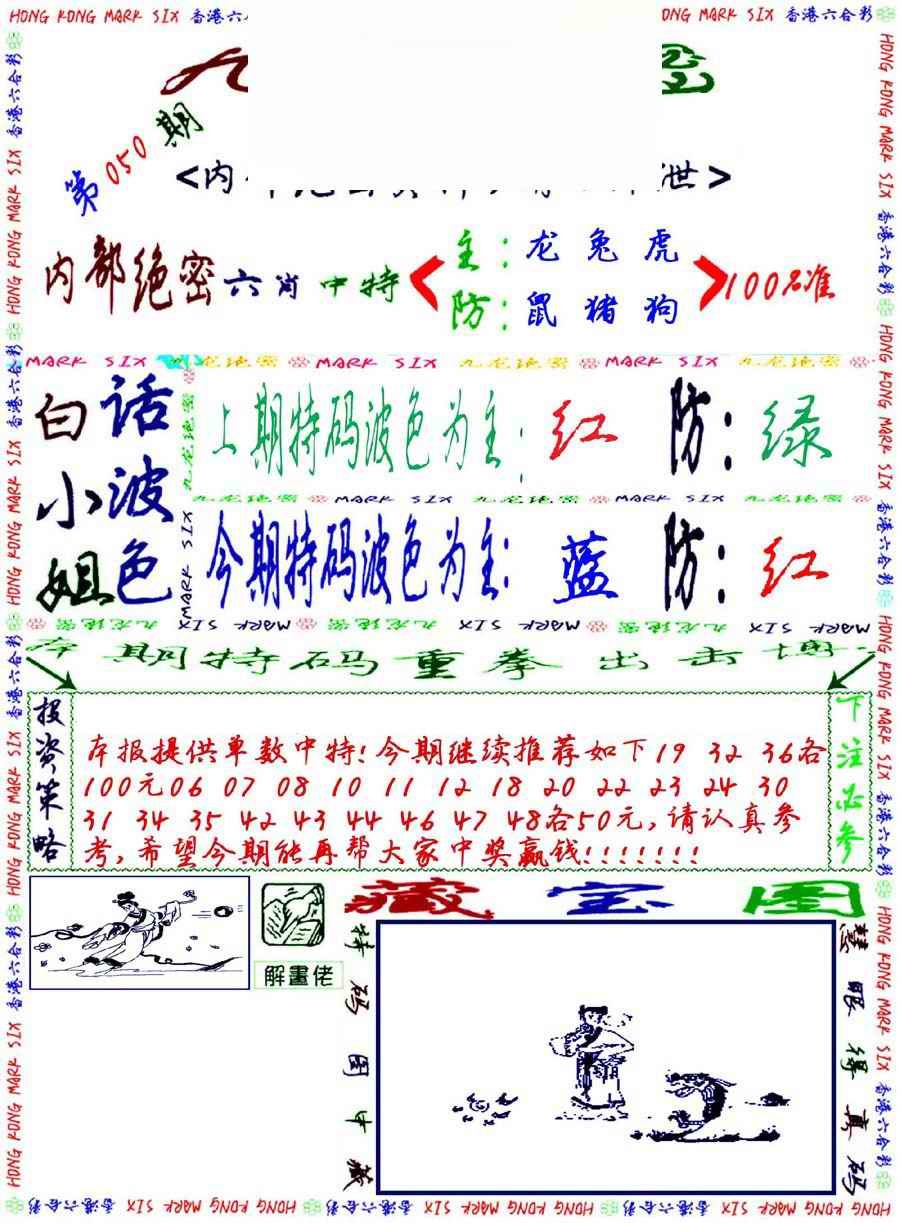 HONG KONG MARK SIX 香港六合彩
第050期
内部绝密六肖中特 主:龙兔虎 100%准
防:鼠猪狗
MARK SIX 九龙绝密 MARK SIX 九龙绝密 MARK SIX 九龙绝密
白话
小波
姐色
上期特码波色为主:红 防:绿
九龙绝密 MARK SIX 九龙绝密 MARK SIX 九龙绝密
今期特码波色为主:蓝 防:红
MARK SIX 九龙绝密 MARK SIX 九龙绝密 MARK SIX 九龙绝密
本期特码重拳出击
投资策略
本报提供单数中特!今期继续推荐如下19 32 36各
100元06 07 08 10 11 12 18 20 22 23 24 30
31 34 35 42 43 44 46 47 48各50元,请认真参
考,希望今期能再帮大家中奖赢钱!!!!!!!
下注必参
藏宝图
解畫佬
特码图中藏
慧眼得真码
HONG KONG MARK SIX 香港六合彩